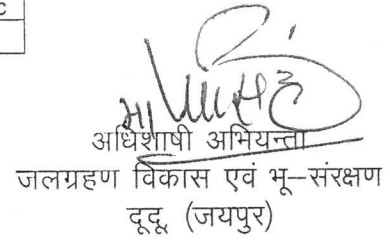 c
अधिशाषी अभियन्ता
जलग्रहण विकास एवं भू–संरक्षण
दूदू (जयपुर)